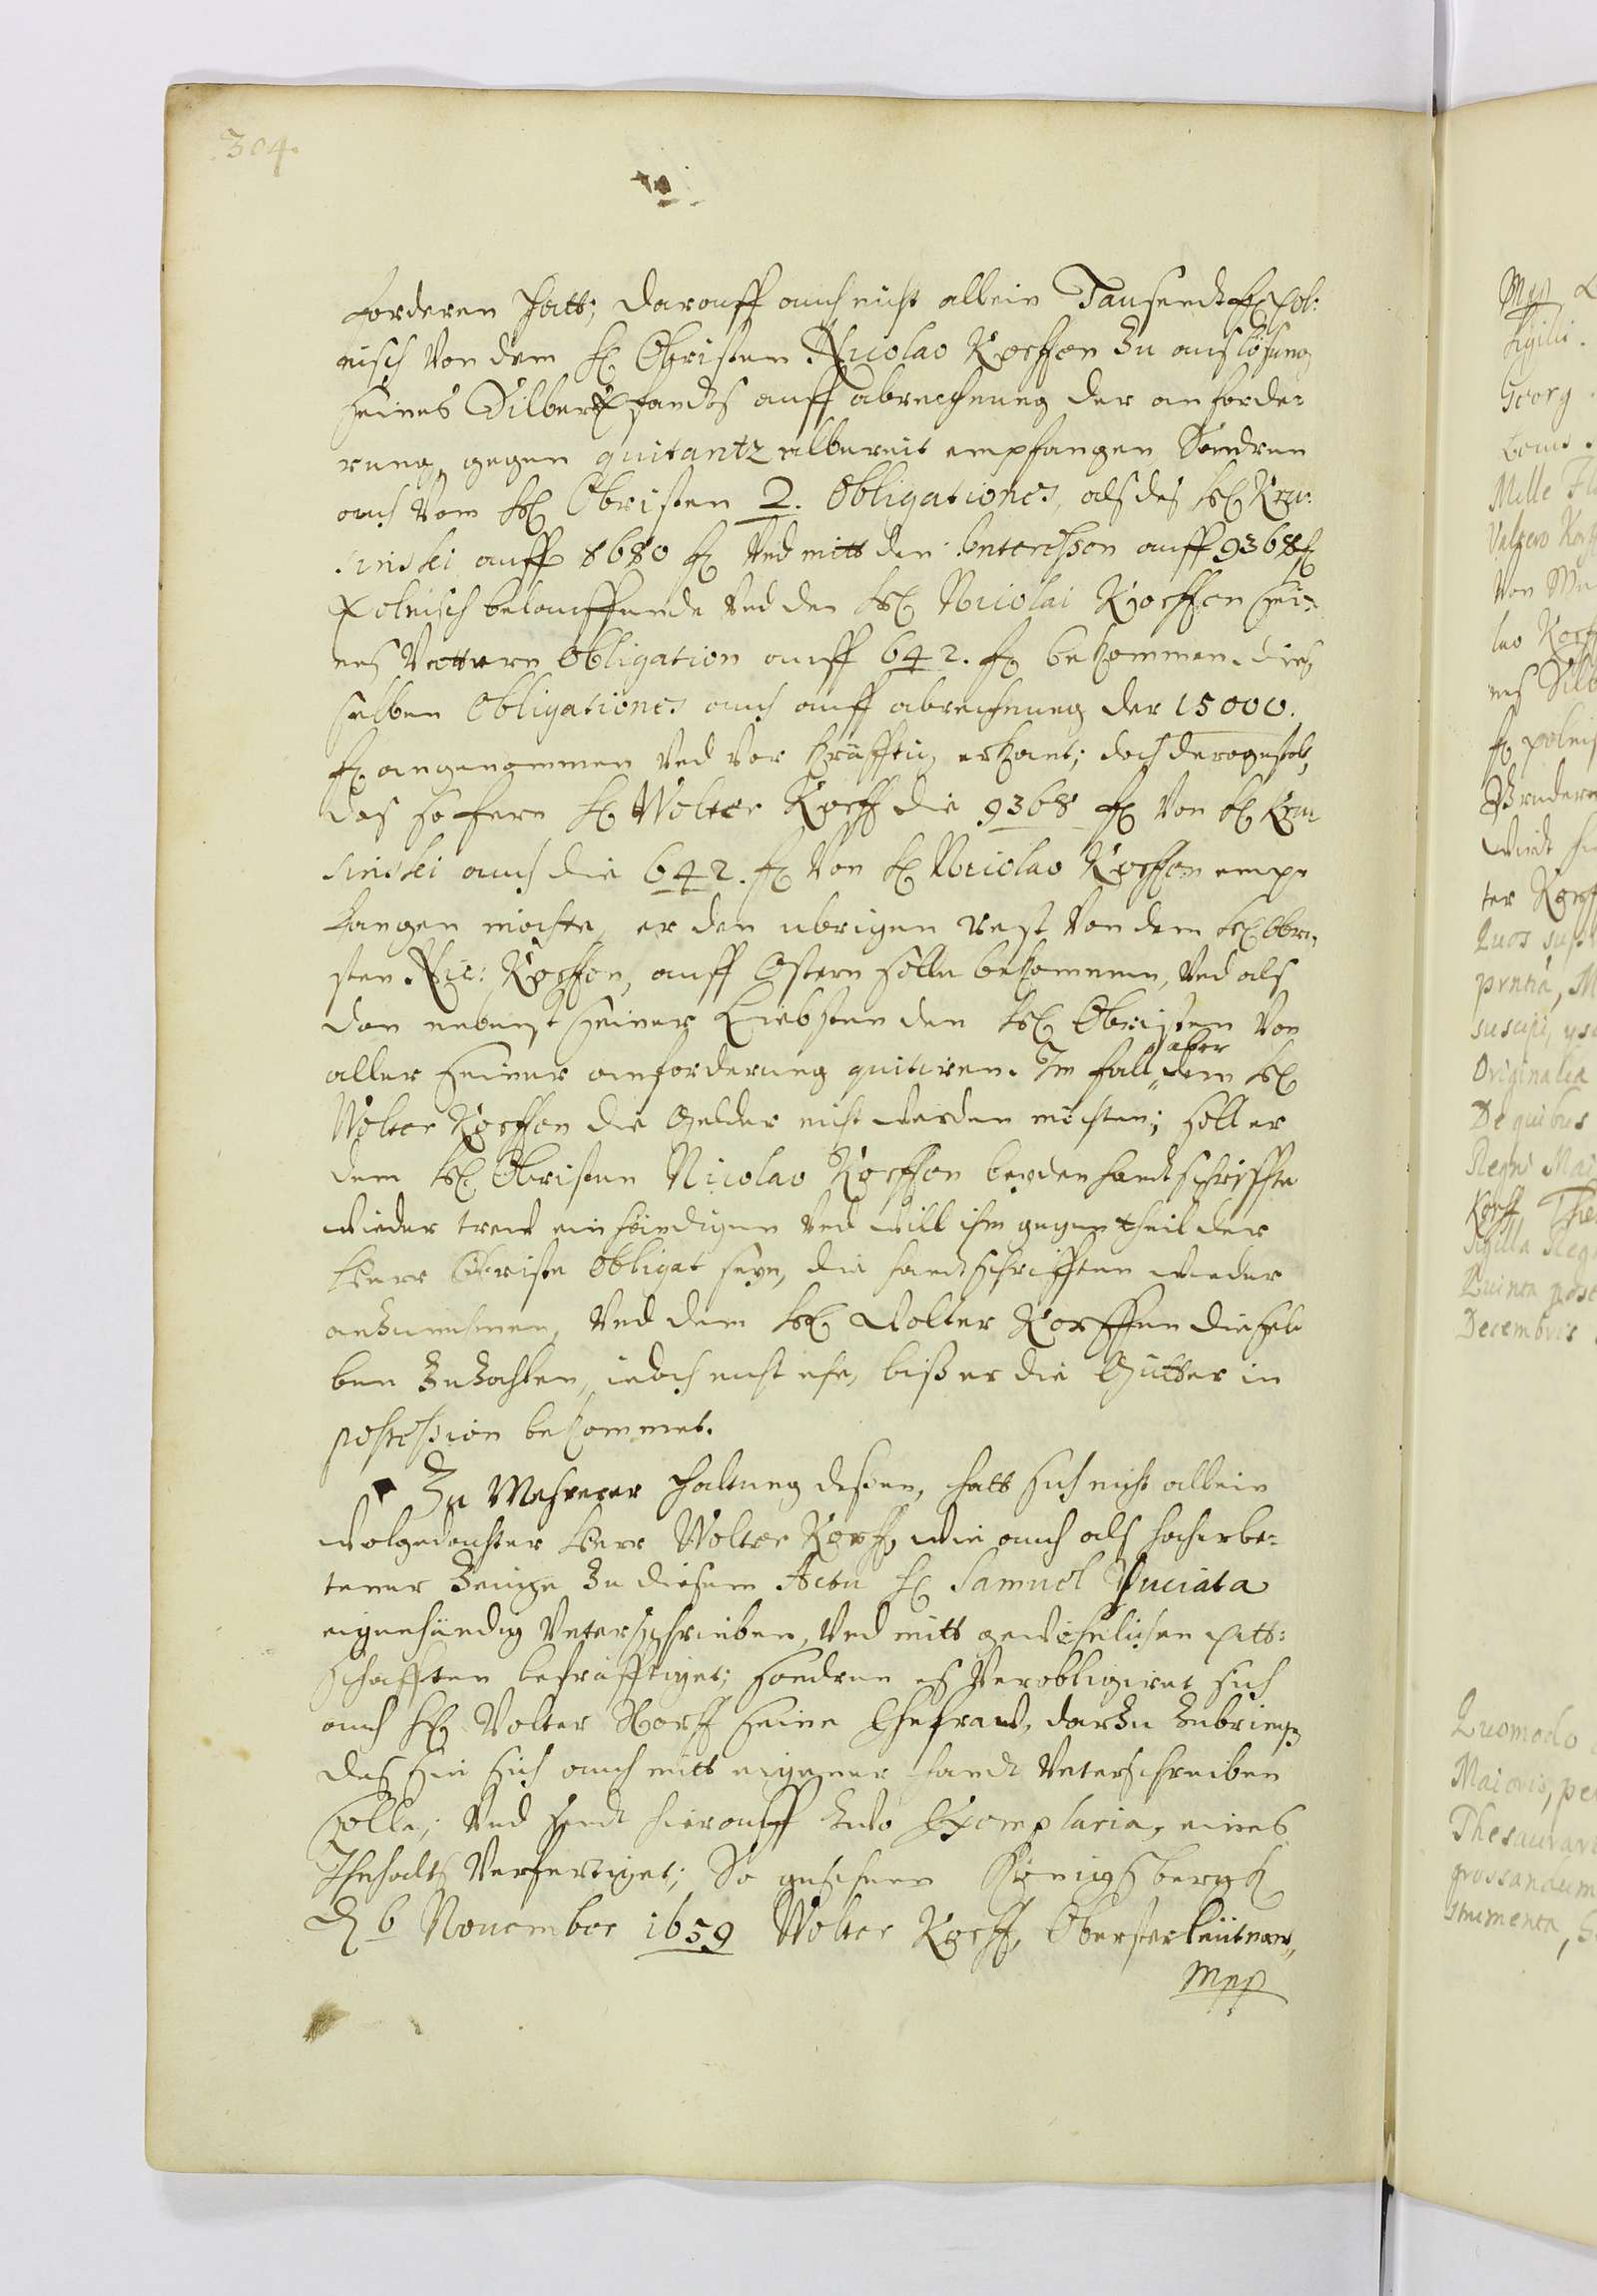 304.
forderen hatt; darauff auch nicht allein Tausendt fl. Pol:
nisch von dem H. Obristen Nicolao Korffen zu auslösung
Seines Silberpfandes auff abrechnung der anforde:
rung, gegen quitantz albereit empfangen Sondren
auch Vom H. Obristen 2. Obligationes, als des H. Kru:
sinski auff 8680 fl. Vnd mitt den Interessen auff 9368 fl.
Polnisch belauffende Vnd den H. Nicolai Korffen Sei:
nes Vettern Obligation auff 642. fl. bekommen. diese
selben Obligationes auch auff abrechnung der 15000.
fl. angenommen Vnd vor kräfftig erkant; doch derogestalt,
das so fern H. Wolter Korff die 9368 fl. Von H. Kru
sinski auch die 642. fl. Von H. Nicolao Korffen emp:
fangen möchte, er den ubrigen rest Von dem H. Obri:
sten Nic: Korffen, auff Ostern solle bekommen, Vnd als
dan nebenst Seiner Liebsten den H. Obristen Von
aller Seiner anforderung quitiren. Im fall aber dem H.
Wolter Korffen die Gelder nicht werden möchten; soll er
dem H. Obristen Nicolao Korffen beyden handtschriffte
wieder trewl einhändigen Vnd will ihm gegentheil der
Herr Obriste Obligat seyn, die handtschrifften wieder
anzunehmen, Vnd dem H. Wolter Korffen diesel:
ben zuzahlen, iedoch nicht ehe, biß er die Gütter in
possession bekommet.
Zu Mehrerer haltung deßen, hatt sich nicht allein
Wolgedachter Herr Wolter Korff, wie auch als hocherbe:
tener Zeuge zu diesem Actu H. Samuel Puciata
eigenhändig Vnterschrieben, Vnd mitt gewöhnlichen Pitt:
schafften bekräfftiget; sondren es Verobligiret sich
auch H. Wolter Korff seine Ehefraw, darzu zubringen
das Sie sich auch mitt eigener handt Vnterschreiben
solle; Vnd sindt hierauff zwo Exemplaria, eines
Inhalts Verfertiget; So geschehen Königsbergk
D 6 Nouember 1659 Wolter Korff, Obersterleütnan,,
Mpp
Mpp
Sigilli.
Georg
Mille Fl
Valtero Korf
Von
lao Korf
nes Silb
fl. polnis
Brudern
wirdt
ter Korff
Quos sup
pntia, M
suscipi,
Originalia
De quibus
Regni Mai
Korff, The
Sigilla Reg
Quinta post
Decembris
Quomodo
Maioris, per
Thesaurar
grossandum
strumenta,